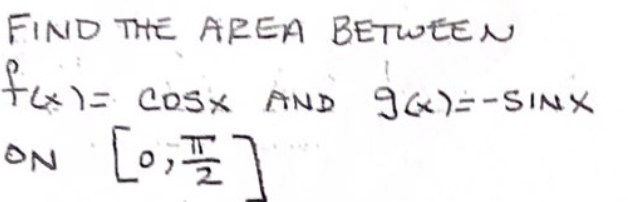 FIND THE AREA BETWEEN
f(x)= COSX AND g(x)=-SINX
ON [0,π/2]